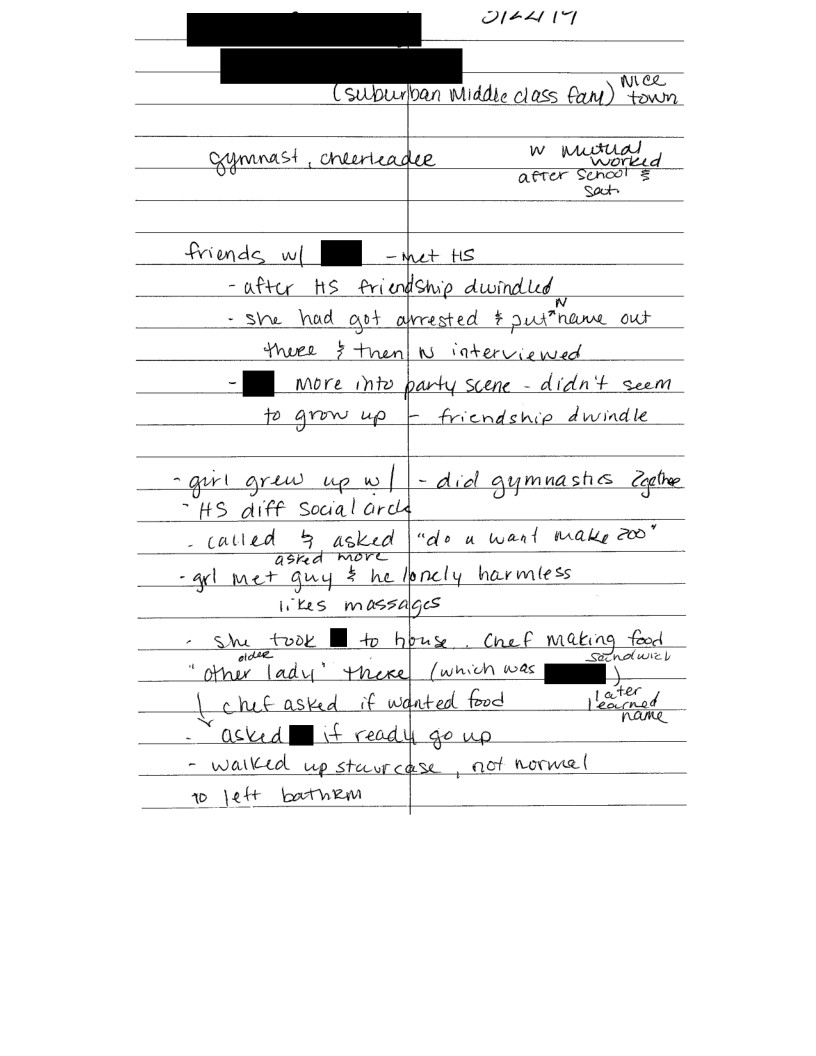 (suburban Middle class fam) Nice town
gymnast, cheerleader
W Mutual
worked
after school &
Sat.
friends w/ - met HS
- after HS friendship dwindled
- she had got arrested & put N name out
there & then N interviewed
- more into party scene - didn't seem
to grow up - friendship dwindle
- girl grew up w/ - did gymnastics 2gether
- HS diff Social circle
- called & asked "do u want make 200"
asked more
- grl met guy & he lonely harmless
likes massages
- she took to house. Chef making food
sandwich
older
"other lady" there (which was )
later
learned
name
chef asked if wanted food
- asked if ready go up
- walked up staircase, not normal
to left bathrm